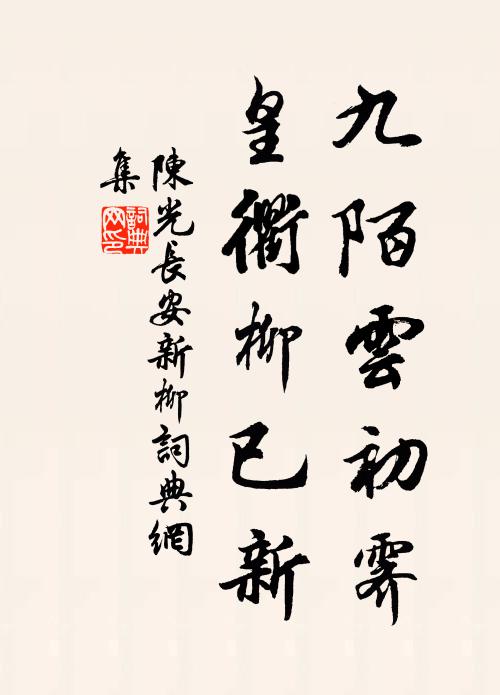 九陌雲初霽
皇衢柳已新
陳光長安新柳詞典網
集
詞典
网印